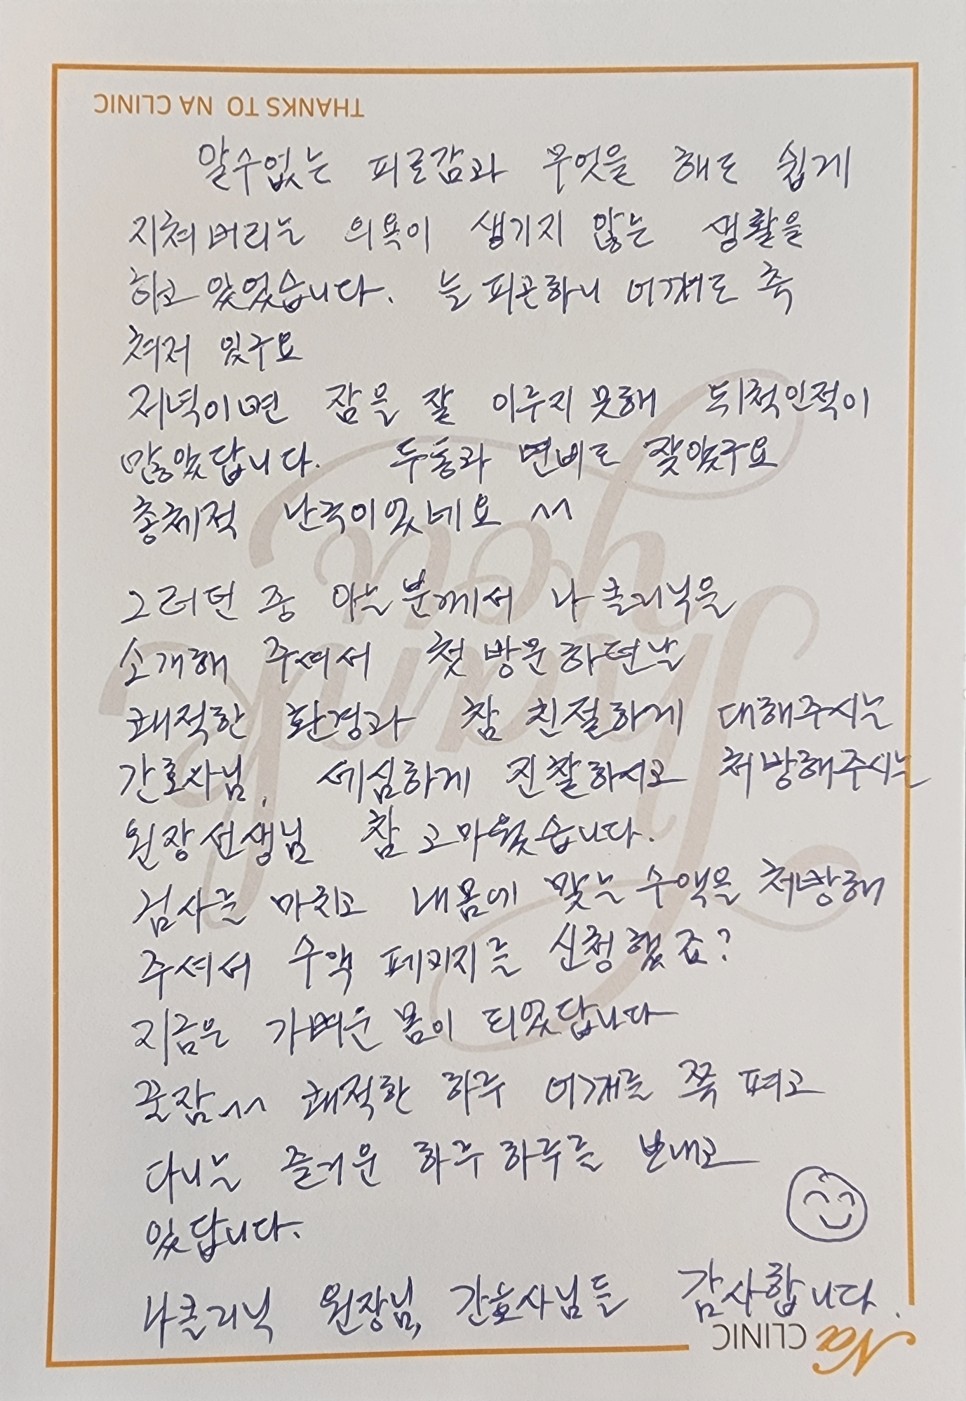 THANKS TO NA CLINIC
알수없는 피로감과 무엇을 해도 쉽게
지쳐버리는 의욕이 생기지 않는 생활을
하고 있었습니다. 늘 피곤하니 어깨도 축
쳐저 있구요
저녁이면 잠을 잘 이루지 못해 뒤척인적이
많았답니다. 두통과 변비도 잦았구요
총체적 난국이였네요 ^^
그러던 중 아는분께서 나 클리닉을
소개해 주셔서 첫 방문하던날
쾌적한 환경과 참 친절하게 대해주시는
간호사님, 세심하게 진찰하시고 처방해주시는
원장선생님 참 고마웠습니다.
검사를 마치고 내몸에 맞는 수액을 처방해
주셔서 수액 패키지를 신청했죠?
지금은 가벼운 몸이 되었답니다
꿀잠^^ 쾌적한 하루 어깨를 쭉 펴고
다니는 즐거운 하루하루를 보내고
있답니다.
나클리닉 원장님, 간호사님들 감사합니다.
Na CLINIC
Thank you